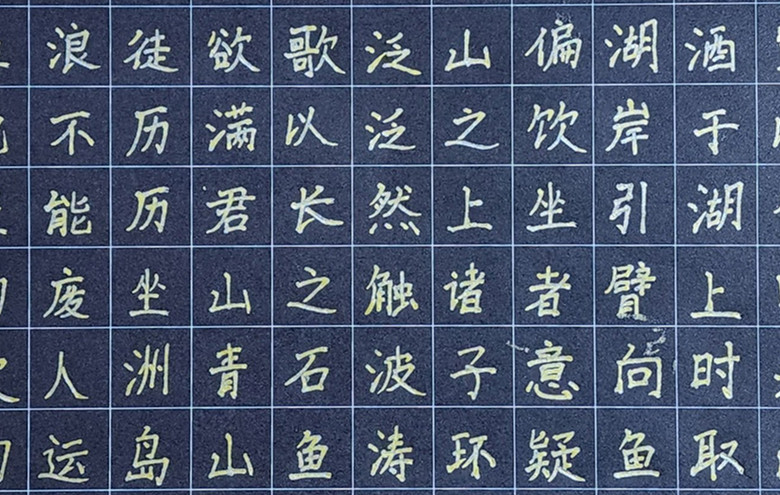 酒于湖上时取
湖岸引臂向鱼
偏饮坐者意疑
山之上诸子环
泛泛然触波涛
歌以长之石鱼
欲满君山青山
徒历历坐洲岛
浪不能废人运